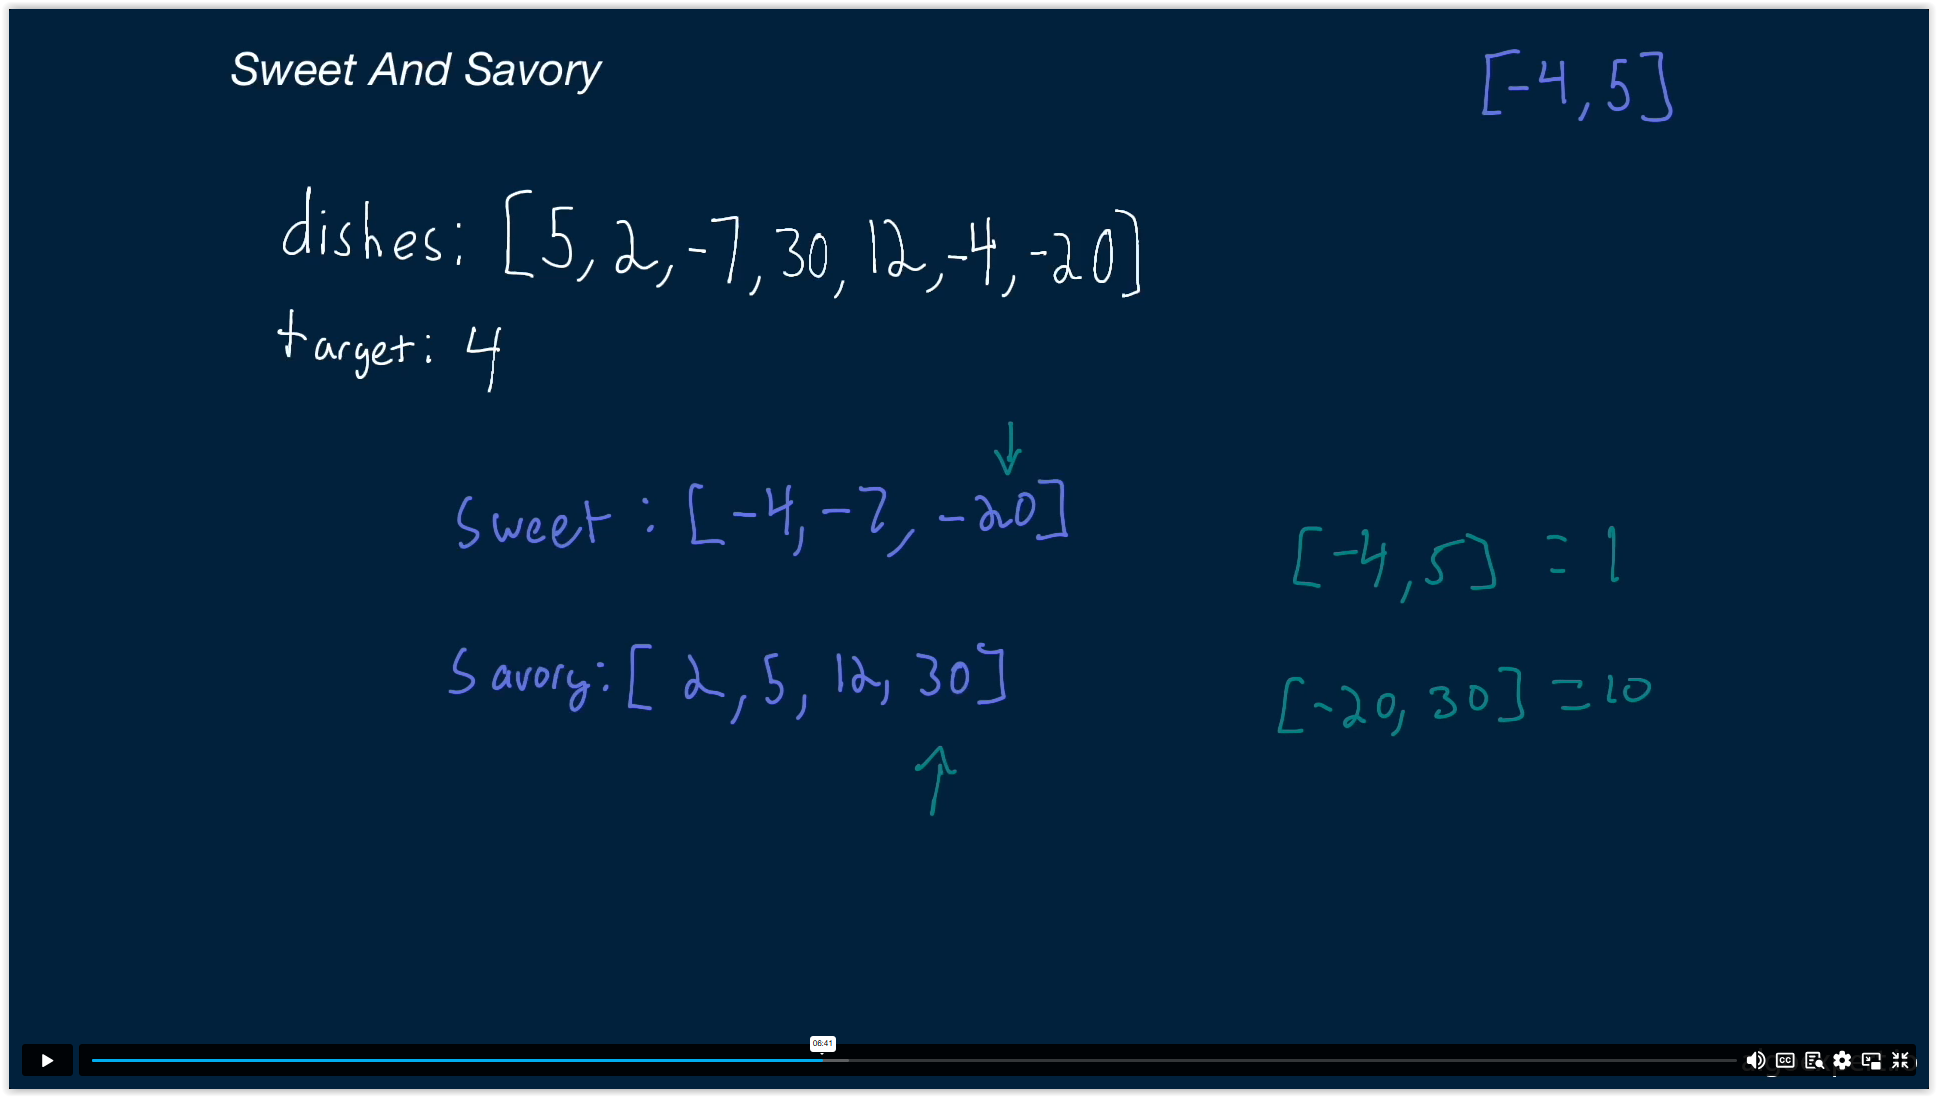 Sweet And Savory
[-4, 5]
dishes: [5, 2, -7, 30, 12, -4, -20]
target: 4
sweet: [-4, -7, -20]
[-4, 5] = 1
savory: [2, 5, 12, 30]
[-20, 30] = 10
06:41
CC